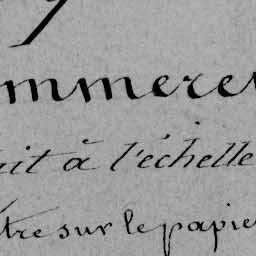 mmerei
ait à l'échelle
tre sur le papie